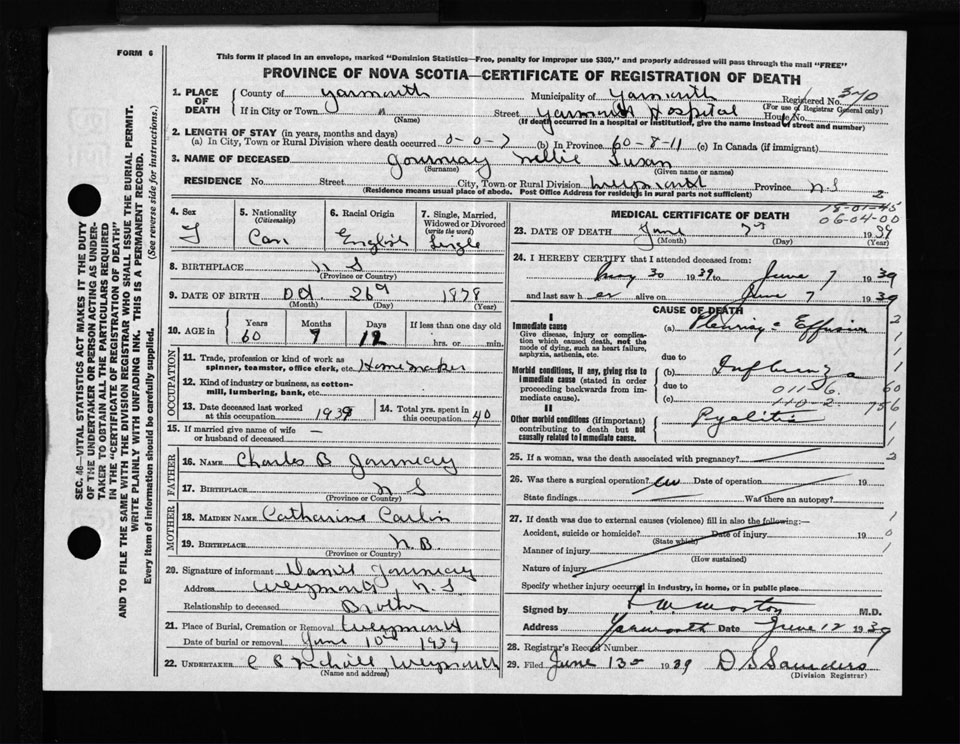 FORM 6
This form if placed in an envelope, marked "Dominion Statistics—Free, penalty for improper use $300," and properly addressed will pass through the mail "FREE"
PROVINCE OF NOVA SCOTIA—CERTIFICATE OF REGISTRATION OF DEATH
SEC. 46—VITAL STATISTICS ACT MAKES IT THE DUTY
OF THE UNDERTAKER OR PERSON ACTING AS UNDER-
TAKER TO OBTAIN ALL THE PARTICULARS REQUIRED
IN THE "CERTIFICATE OF REGISTRATION OF DEATH"
AND TO FILE THE SAME WITH THE DIVISION REGISTRAR WHO SHALL ISSUE THE BURIAL PERMIT.
WRITE PLAINLY WITH UNFADING INK. THIS IS A PERMANENT RECORD.
Every item of information should be carefully supplied. (See reverse side for instructions.)
1. PLACE OF DEATH County of Yarmouth Municipality of Yarmouth Registered No. 340
(For use of Registrar General only)
If in City or Town " (Name) Street Yarmouth Hospital House No.
(If death occurred in a hospital or institution, give the name instead of street and number)
2. LENGTH OF STAY (in years, months and days)
(a) In City, Town or Rural Division where death occurred 0-0-7 (b) In Province 60-8-11 (c) In Canada (if immigrant)
3. NAME OF DECEASED Journeay Nellie Susan
(Surname) (Given name or names)
RESIDENCE No. Street City, Town or Rural Division Weymouth Province N.S
(Residence means usual place of abode. Post Office Address for residents in rural parts not sufficient)
2
18-01-45
06-04-00
4. Sex F
5. Nationality (Citizenship) Can
6. Racial Origin English
7. Single, Married, Widowed or Divorced (write the word) Single
8. BIRTHPLACE N S
(Province or Country)
9. DATE OF BIRTH Oct 26th 1878
(Month) (Day) (Year)
10. AGE in Years 60 Months 7 Days 12 If less than one day old
hrs. or min.
OCCUPATION
11. Trade, profession or kind of work as
spinner, teamster, office clerk, etc. Homemaker
12. Kind of industry or business, as cotton-
mill, lumbering, bank, etc.
13. Date deceased last worked
at this occupation 1939
14. Total yrs. spent in
this occupation 40
15. If married give name of wife
or husband of deceased —
FATHER
16. NAME Charles B Journeay
17. BIRTHPLACE N S
(Province or Country)
MOTHER
18. MAIDEN NAME Catharine Carlin
19. BIRTHPLACE N.B.
(Province or Country)
20. Signature of informant Daniel Journeay
Address Weymouth, N.S
Relationship to deceased Brother
21. Place of Burial, Cremation or Removal Weymouth
Date of burial or removal June 10th 1939
22. UNDERTAKER Weymouth
(Name and address)
MEDICAL CERTIFICATE OF DEATH
23. DATE OF DEATH June 7th 1939
(Month) (Day) (Year)
24. I HEREBY CERTIFY that I attended deceased from:
May 30 1939 to June 7 1939
and last saw h er alive on June 7 1939
CAUSE OF DEATH
I
Immediate cause
Give disease, injury or complica-
tion which caused death, not the
mode of dying, such as heart failure,
asphyxia, asthenia, etc.
(a) Pleurisy c Effusion
due to
Morbid conditions, if any, giving rise to
immediate cause (stated in order
proceeding backwards from im-
mediate cause).
(b) Influenza
due to 011-6
(c) 110-2
II
Other morbid conditions (if important)
contributing to death but not
causally related to immediate cause.
Pyelitis
60
756
25. If a woman, was the death associated with pregnancy?
26. Was there a surgical operation? Date of operation 19
State findings Was there an autopsy?
27. If death was due to external causes (violence) fill in also the following:—
Accident, suicide or homicide? Date of injury 19
(State which)
Manner of injury
(How sustained)
Nature of injury
Specify whether injury occurred in industry, in home, or in public place
Signed by M.D.
Address Yarmouth Date June 12 1939
28. Registrar's Record Number
29. Filed June 13th 1939 D S Saunders
(Division Registrar)